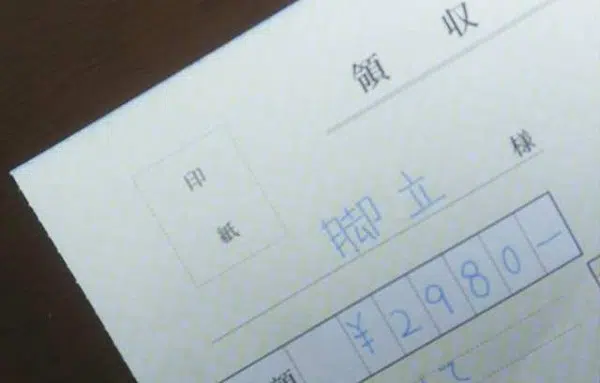 領収
印紙
脚立 様
額 ¥2980-
て